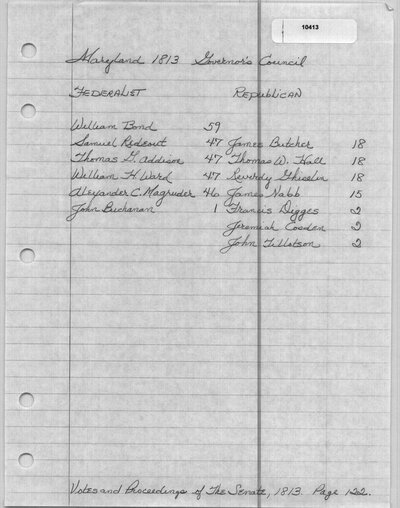 10413
Maryland 1813 Governor's Council
FEDERALIST REPUBLICAN
William Bond 59
Samuel Redeout 47 James Butcher 18
Thomas G. Addison 47 Thomas W. Hall 18
William H. Ward 47 Reverdy Ghiselin 18
Alexander C. Magruder 46 James Nabb 15
John Buchanan 1 Francis Digges 2
Jeremiah Cosden 2
John Tillotson 2
Votes and Proceedings of The Senate, 1813. Page 122.